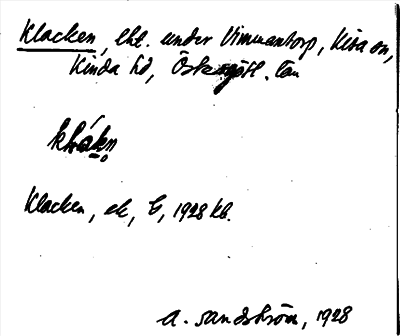 Klacken, lht. under Vimmantorp, Kisa sn,
Kinda hd, Östergötl. län
klákn
Klacken, ek, G, 1928 kb.
A. Sandström, 1928